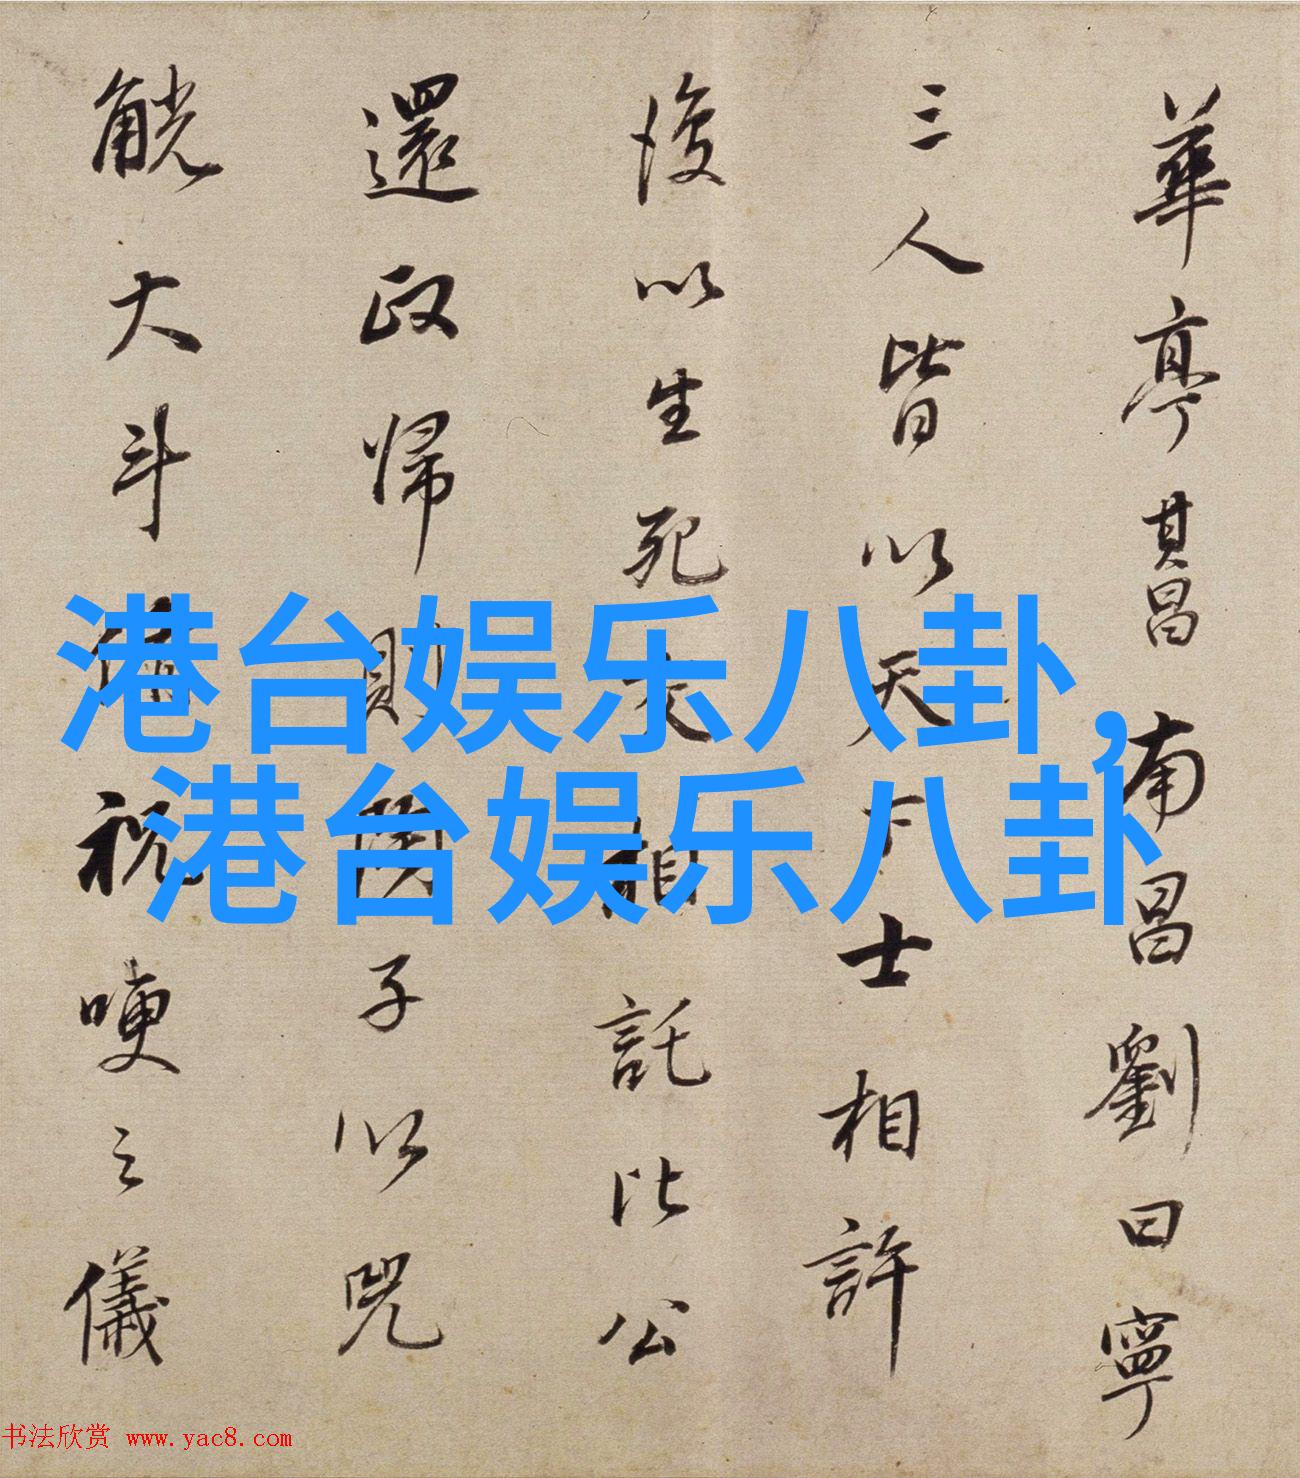 華亭其昌南昌劉曰寧
三人皆以天下士相許
後以生死交相託比公
還政歸則閱子以兕
觥大斗祝哽之儀
港台娱乐八卦，
港台娱乐八卦
书法欣赏 www.yac8.com